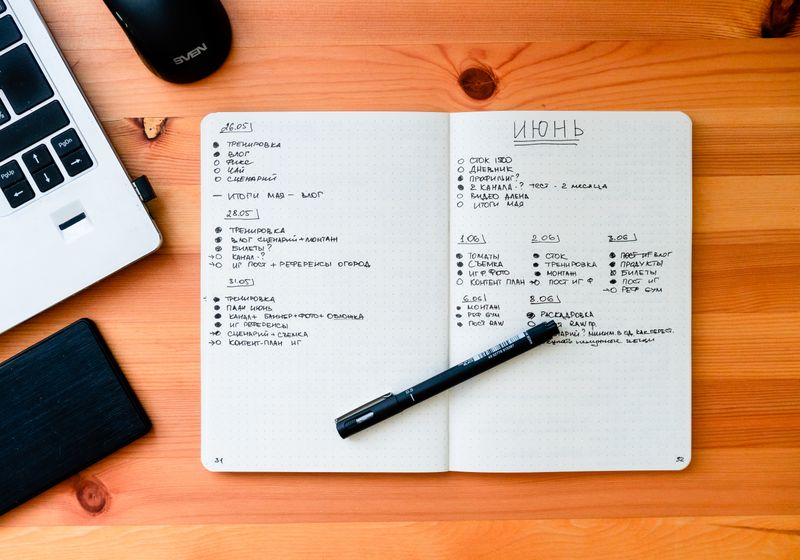 SVEN
PgUp
PgDn
26.05
● ТРЕНИРОВКА
● ВЛОГ
○ ФИКС
○ ЧАЙ
○ СЦЕНАРИЙ
— ИТОГИ МАЯ — ВЛОГ
28.05
● ТРЕНИРОВКА
● ВЛОГ СЦЕНАРИЙ+МОНТАЖ
● БИЛЕТЫ?
→○ КАНАЛ-?
→○ ИГ ПОСТ + РЕФЕРЕНСЫ ОГОРОД
31.05
● ТРЕНИРОВКА
● ПЛАН ИЮНЬ
● КАНАЛ + БАННЕР+ФОТО+ОБЛОЖКА
● ИГ РЕФЕРЕНСЫ
→○ СЦЕНАРИЙ+СЪЕМКА
→○ КОНТЕНТ-ПЛАН ИГ
31
ИЮНЬ
○ СТОК 1500
○ ДНЕВНИК
● ПРОФИЛИГ?
● 2 КАНАЛА-? ТЕСТ - 2 МЕСЯЦА
○ ВИДЕО АЛЕНА
○ ИТОГИ МАЯ
1.06
● ТОМАТЫ
● СЪЕМКА
● ИГ Ф. ФОТО
○ КОНТЕНТ ПЛАН
2.06
● СТОК
● ТРЕНИРОВКА
● МОНТАЖ
→○ ПОСТ ИГ Ф
3.06
● ПОСТ ИГ ВЛОГ
● ПРОДУКТЫ
● БИЛЕТЫ
● ПОСТ ИГ
→○ РЕФ БУМ
6.06
● МОНТАЖ
● РЕФ БУМ
● ПОСТ RAW
8.06
● РАСКАДРОВКА
RAW ПР.
32